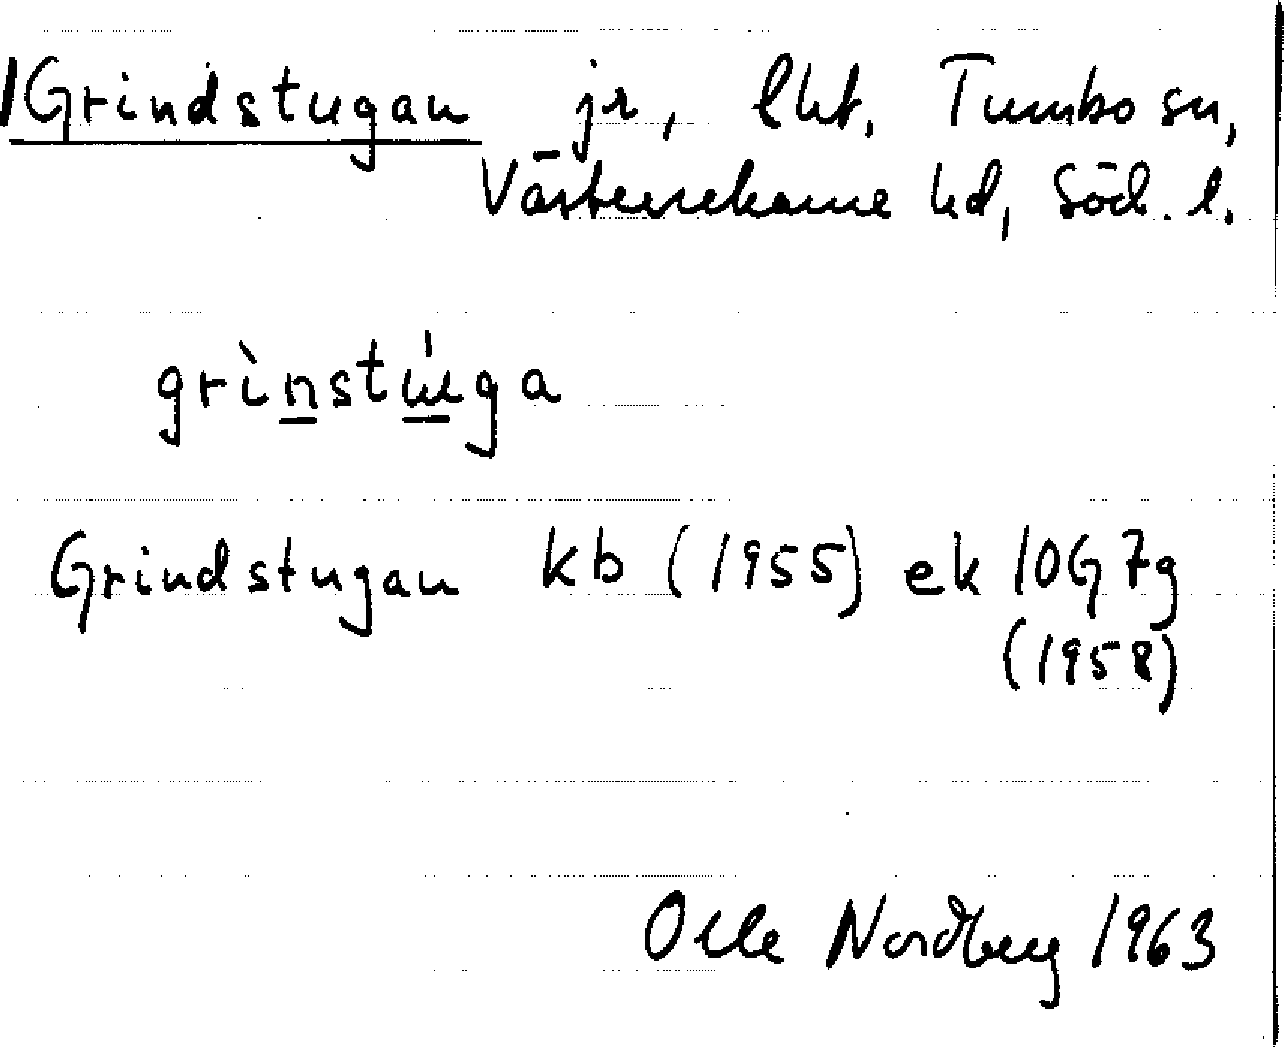 Grindstugan jr, lht. Tumbo sn,
Västerrekarne hd, Söd. l.
grìnstɯ́ga
Grindstugan kb (1955) ek 10G7g
(1958)
Olle Nordberg 1963